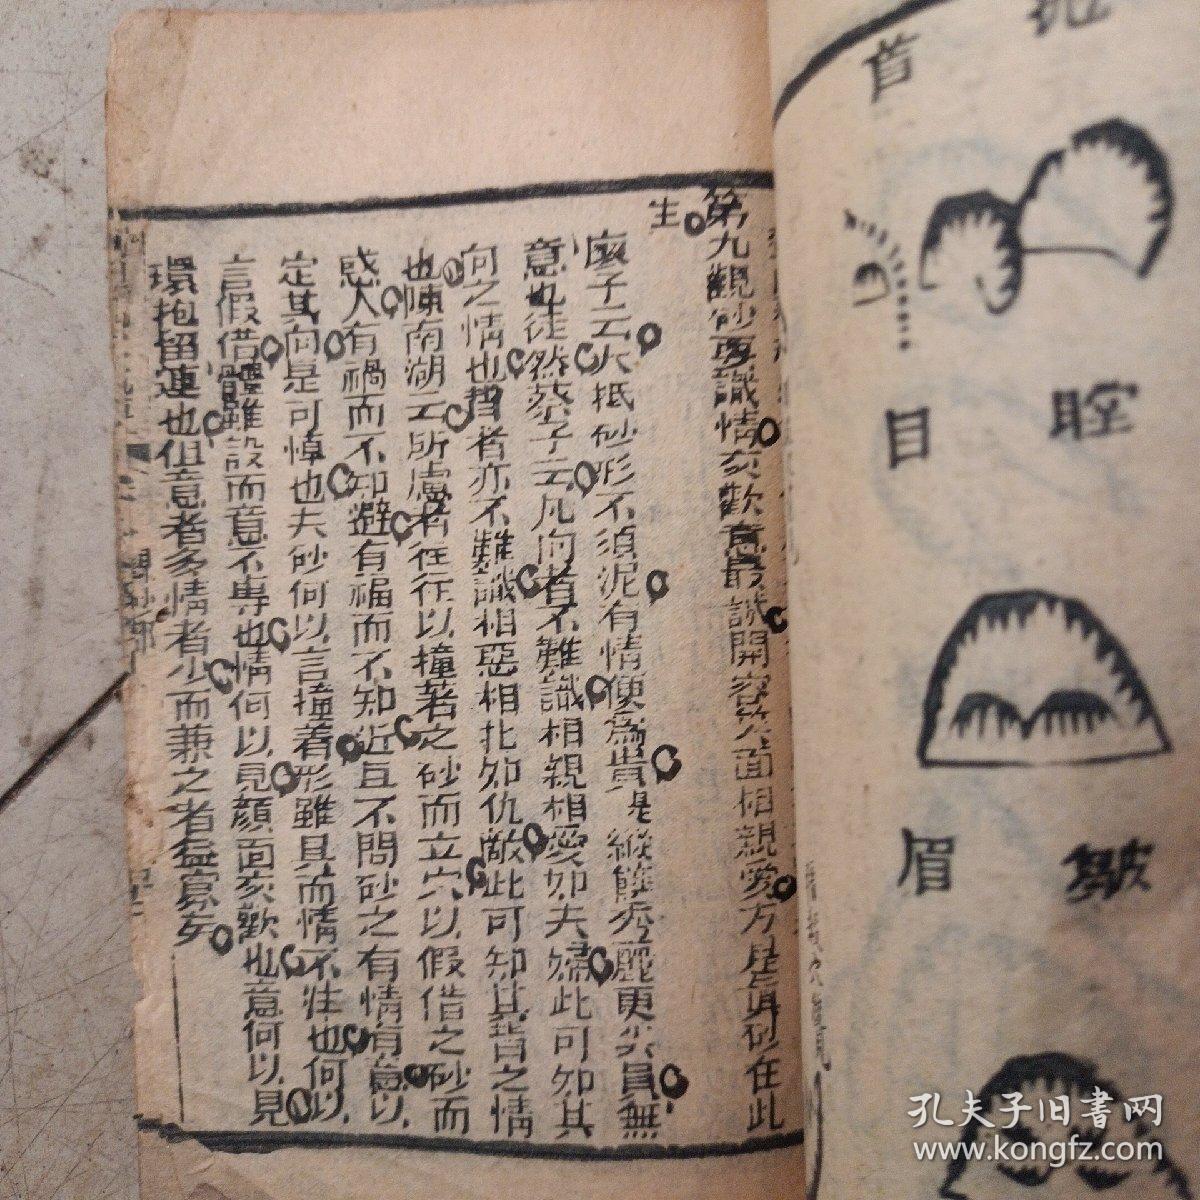 首
目
眉
皺
第九觀砂再識情亥歡意最誠開容笑面相親愛方是真砂在此
生
廖子云大抵砂形不須泥有情便為貴是縱饒秀麗更尖員無
意也徒然蔡子云凡向者不難識相親相愛如夫婦此可知其
向之情也背者亦不難識相惡相扯如仇敵此可知其背之情
也陳南湖云所慮者往往以撞著之砂而立穴以假借之砂而
惑人有禍而不知避有福而不知近且不問砂之有情有意以
定其向是可悼也夫砂何以言撞着形雖具而情不注也何以
言假借體雖設而意不專也情何以見顏面亥歡也意何以見
環抱留連也但意者多情者少而兼之者益寡矣
孔夫子旧書网
www.kongfz.com